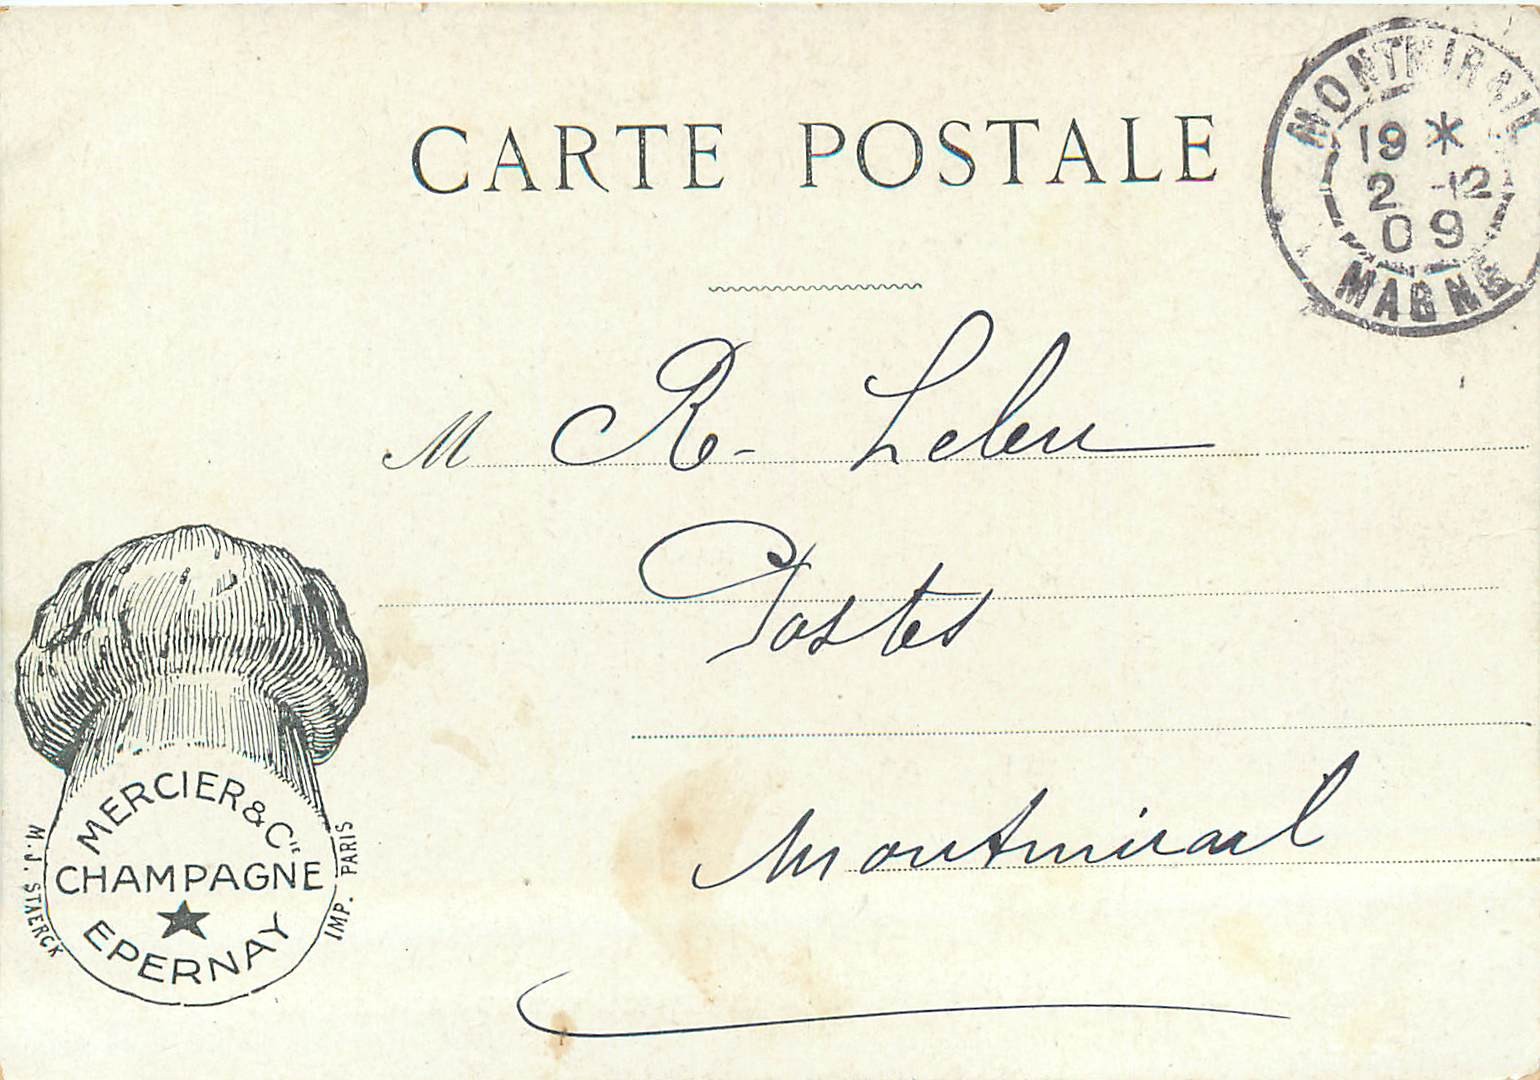 CARTE POSTALE
MONTMIRAIL
19 *
2 -12
09
MARNE
M R- Leleu
Postes
Montmirail
MERCIER & Cie
CHAMPAGNE
★
EPERNAY
M. J. STAERCK
IMP. PARIS